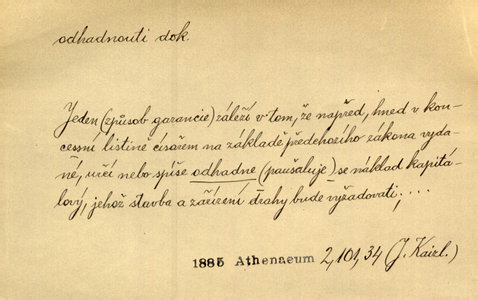 odhadnouti dok.
Jeden (způsob garancie) záleží v tom, že napřed, hned v kon-
cessní listině císařem na základě předchozího zákona vyda-
né, určí nebo spíše odhadne (paušaluje) se náklad kapitá-
lový, jehož stavba a zařízení dráhy bude vyžadovati; ...
1885 Athenaeum 2, 101, 34 (J. Kaizl.)